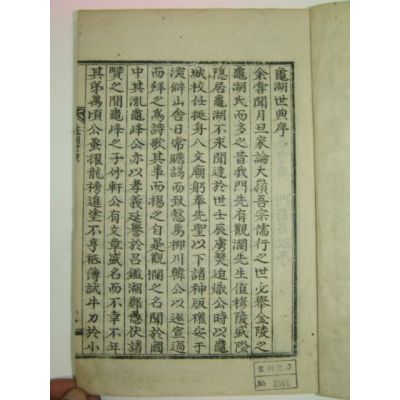 鼇湖世典序
余嘗聞月旦家論大嶺吾宗儒行之世必擧金陵之
鼇湖氏而多之昔我門先有觀瀾先生値穆陵盛際
隱居鼇湖不求聞達於世壬辰虜熒迫熾公時以鼇
城校任挺身入文廟躬奉先聖以下諸神版權安于
深僻山舍日常瞻謁而致慤焉柳川韓公以巡宣過
而拜之爲詩歌其事而揚之自是觀瀾之名聞於國
中其胤鼇峰公亦以孝義延譽於呂鑑湖鄭愚伏諸
賢之間鼇峰之子竹軒公有文章盛名而不幸不年
其弟萬頃公蚤擢龍榜進塗不亨秪薄試牛刀於小
No.